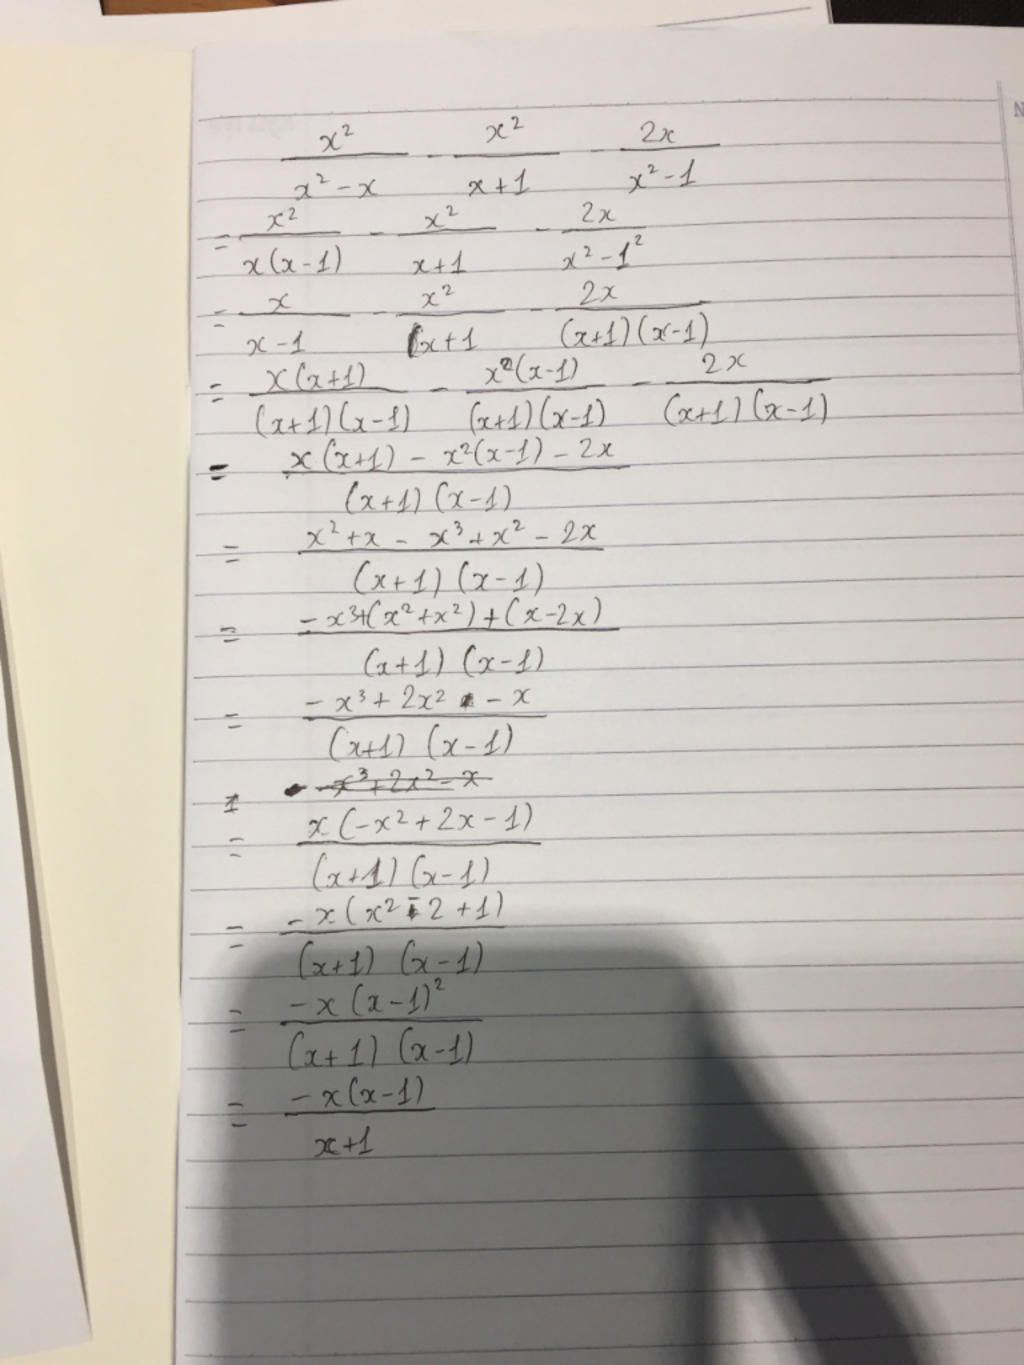 x²/(x² - x) - x²/(x+1) - 2x/(x² - 1)
= x²/(x(x-1)) - x²/(x+1) - 2x/(x² - 1²)
= x/(x-1) - x²/(x+1) - 2x/((x+1)(x-1))
= x(x+1)/((x+1)(x-1)) - x²(x-1)/((x+1)(x-1)) - 2x/((x+1)(x-1))
= (x(x+1) - x²(x-1) - 2x)/((x+1)(x-1))
= (x² + x - x³ + x² - 2x)/((x+1)(x-1))
= (-x³+(x²+x²)+(x-2x))/((x+1)(x-1))
= (-x³ + 2x² - x)/((x+1)(x-1))
-x³+2x²-x
= x(-x² + 2x - 1)/((x+1)(x-1))
= -x(x² - 2 + 1)/((x+1)(x-1))
= -x(x-1)²/((x+1)(x-1))
= -x(x-1)/(x+1)